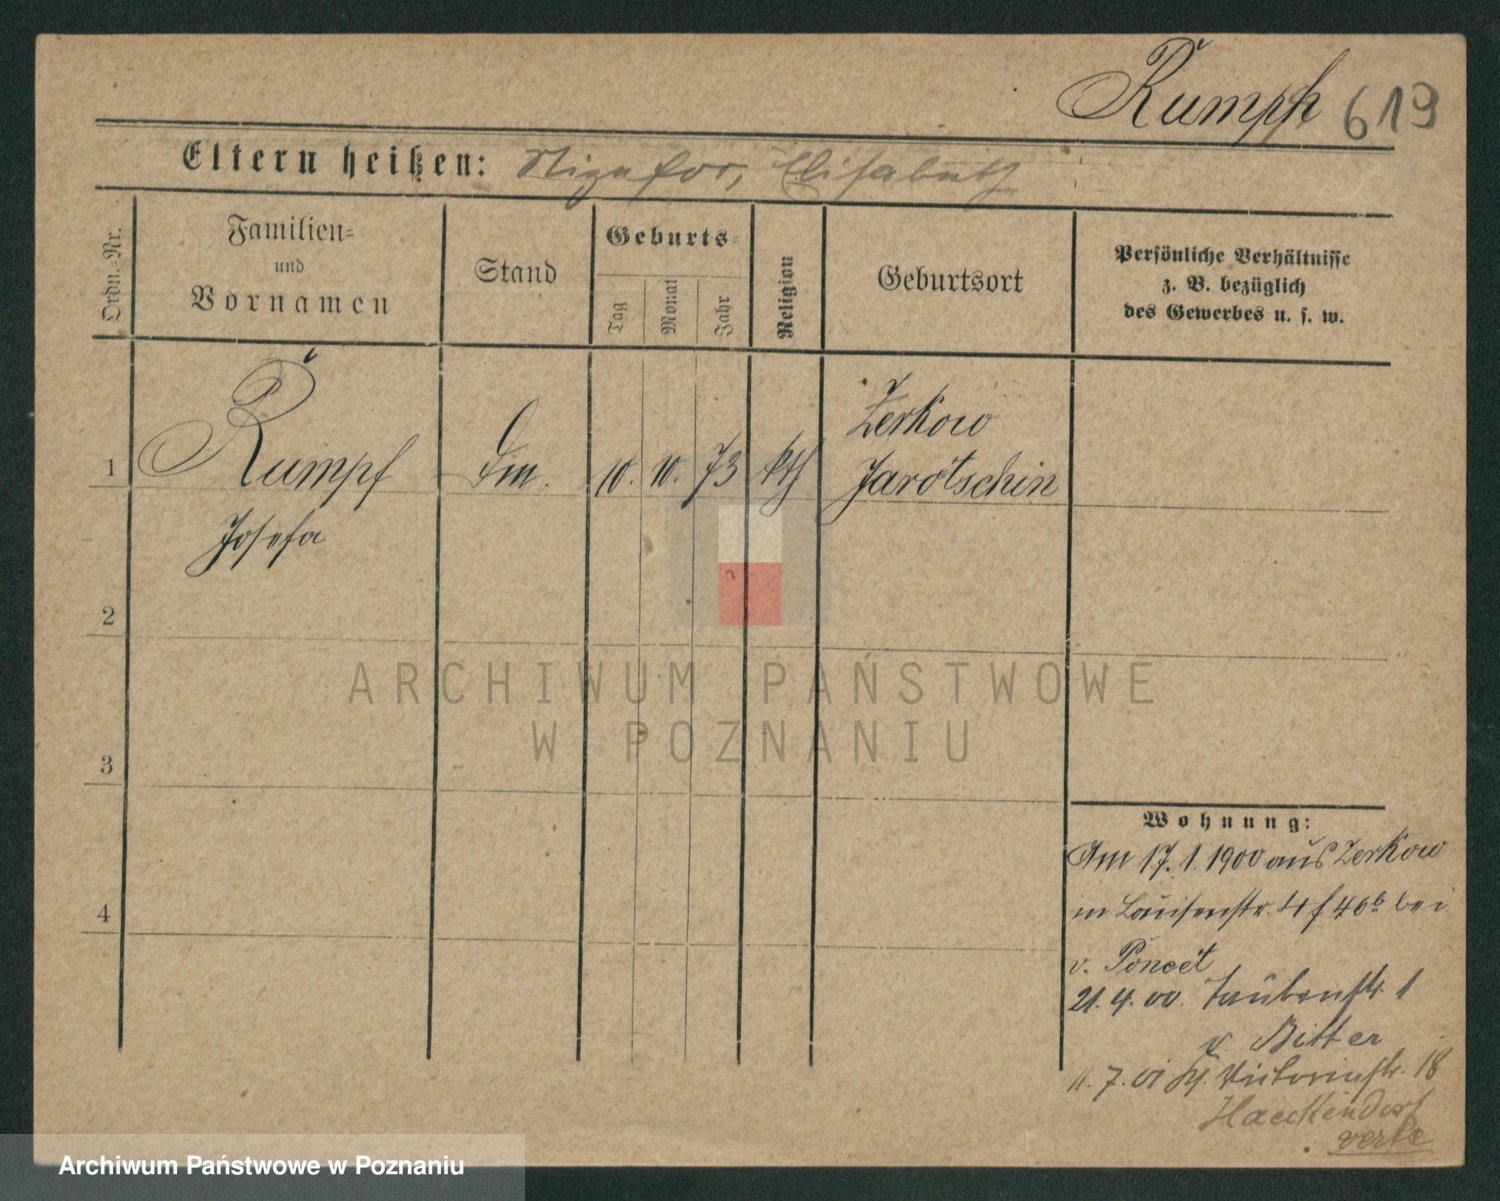 Rumpf 619
Eltern heißen: Nizefor, Elisabeth
Ordn.-Nr.
Familien-
und
Vornamen
Stand
Geburts-
Tag
Monat
Jahr
Religion
Geburtsort
Persönliche Verhältnisse
z. B. bezüglich
des Gewerbes u. s. w.
1
Rumpf
Josefa
Dm.
10. 10. 73
kth
Zerkow
Jarotschin
2
3
4
Wohnung:
Am 17. 1. 1900 aus Zerkow
in Louisenstr. 4 f 46b bei
v. Poncet
21. 4. 00. Taubenstr. 1
v. Bitter
11. 7. 01 Victoriastr. 18
Hackendorf
verte
ARCHIWUM PAŃSTWOWE
W POZNANIU
Archiwum Państwowe w Poznaniu